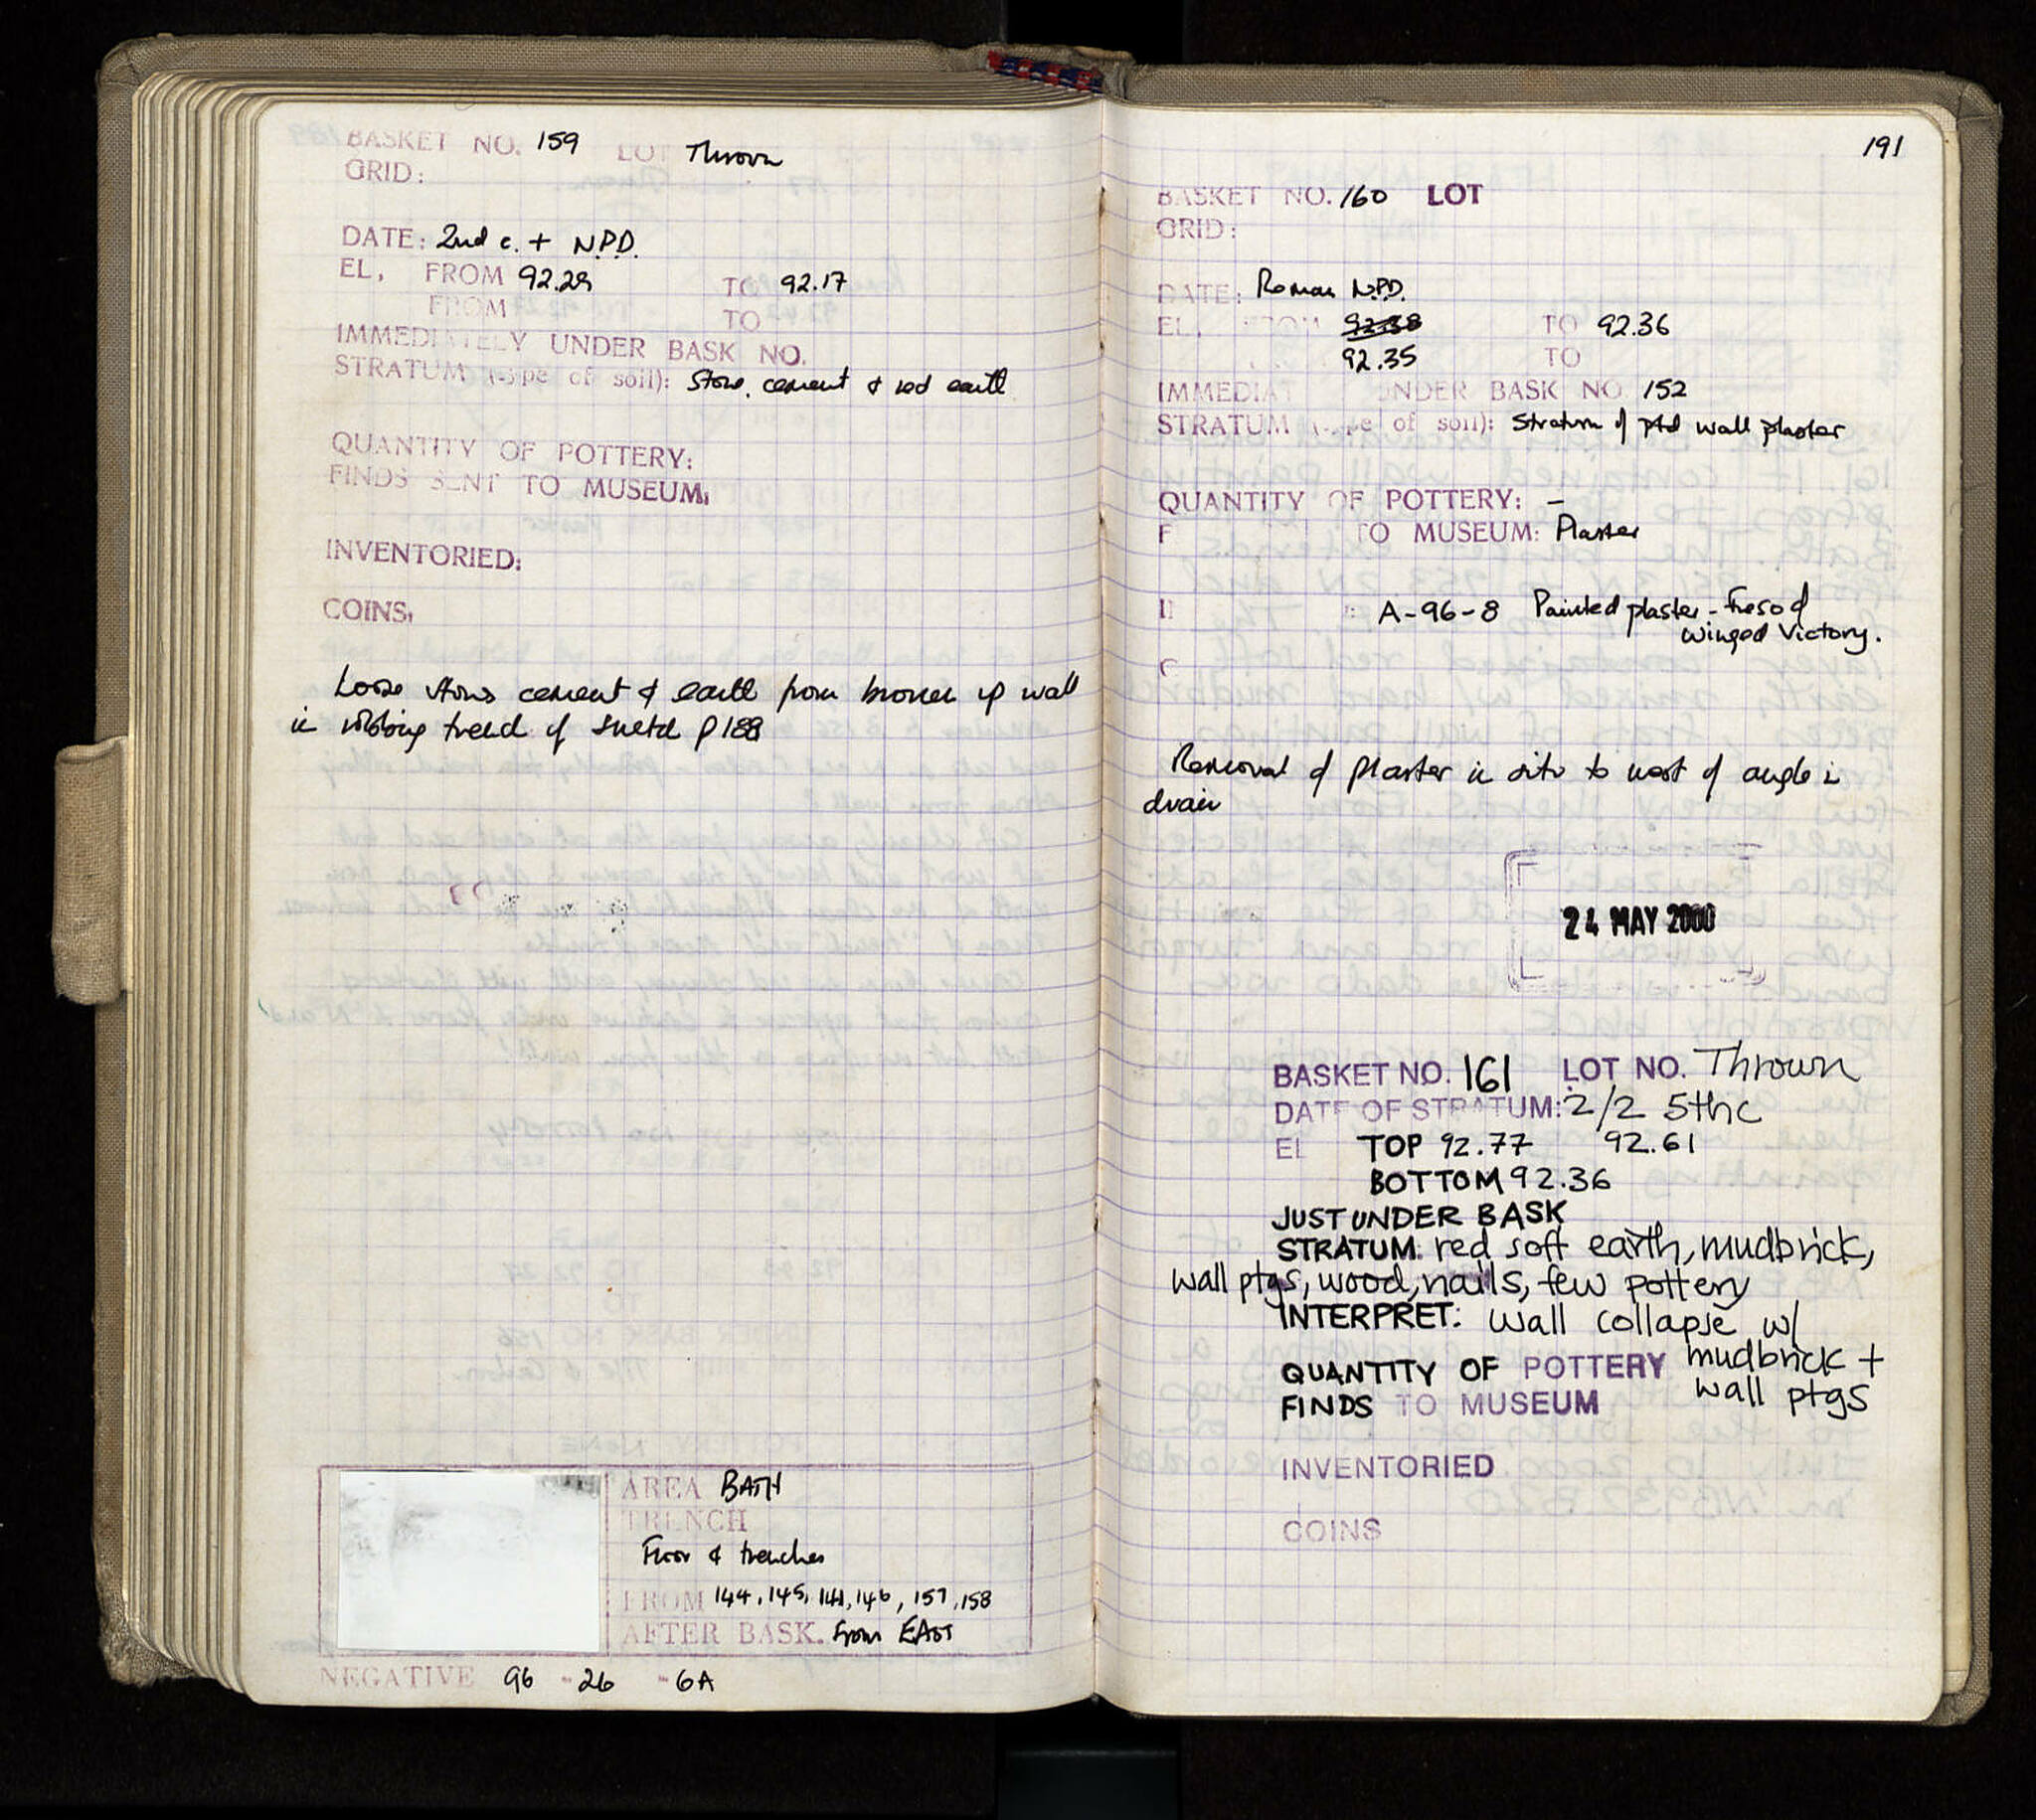 BASKET NO. 159 LOT Thrown
GRID:
DATE: 2nd c. + N.P.D.
EL, FROM 92.29 TO 92.17
FROM TO
IMMEDIATELY UNDER BASK NO.
STRATUM (type of soil): Stone, cement & red earth
QUANTITY OF POTTERY:
FINDS SENT TO MUSEUM:
INVENTORIED:
COINS:
Loose stones cement & earth from broken up wall
in robbing trench cf sketch p 188
AREA BATH
TRENCH
Floor & trenches
FROM 144, 145, 141, 146, 157, 158
AFTER BASK. from EAST
NEGATIVE 96 - 26 - 6A
191
BASKET NO. 160 LOT
GRID:
DATE: Roman N.P.D.
EL, FROM TO 92.36
92.35 TO
IMMEDIAT UNDER BASK NO 152
STRATUM (type of soil): Stratum of ptd wall plaster
QUANTITY OF POTTERY: -
F TO MUSEUM: Plaster
I : A-96-8 Painted plaster - Fresco of
winged Victory.
C
Removal of plaster in situ to west of angle in
drain
24 MAY 2000
BASKET NO. 161 LOT NO. Thrown
DATE OF STRATUM: 2/2 5th c
EL TOP 92.77 92.61
BOTTOM 92.36
JUST UNDER BASK
STRATUM: red soft earth, mudbrick,
wall ptgs, wood, nails, few pottery
INTERPRET: wall collapse w/
mudbrick +
wall ptgs
QUANTITY OF POTTERY
FINDS TO MUSEUM
INVENTORIED
COINS